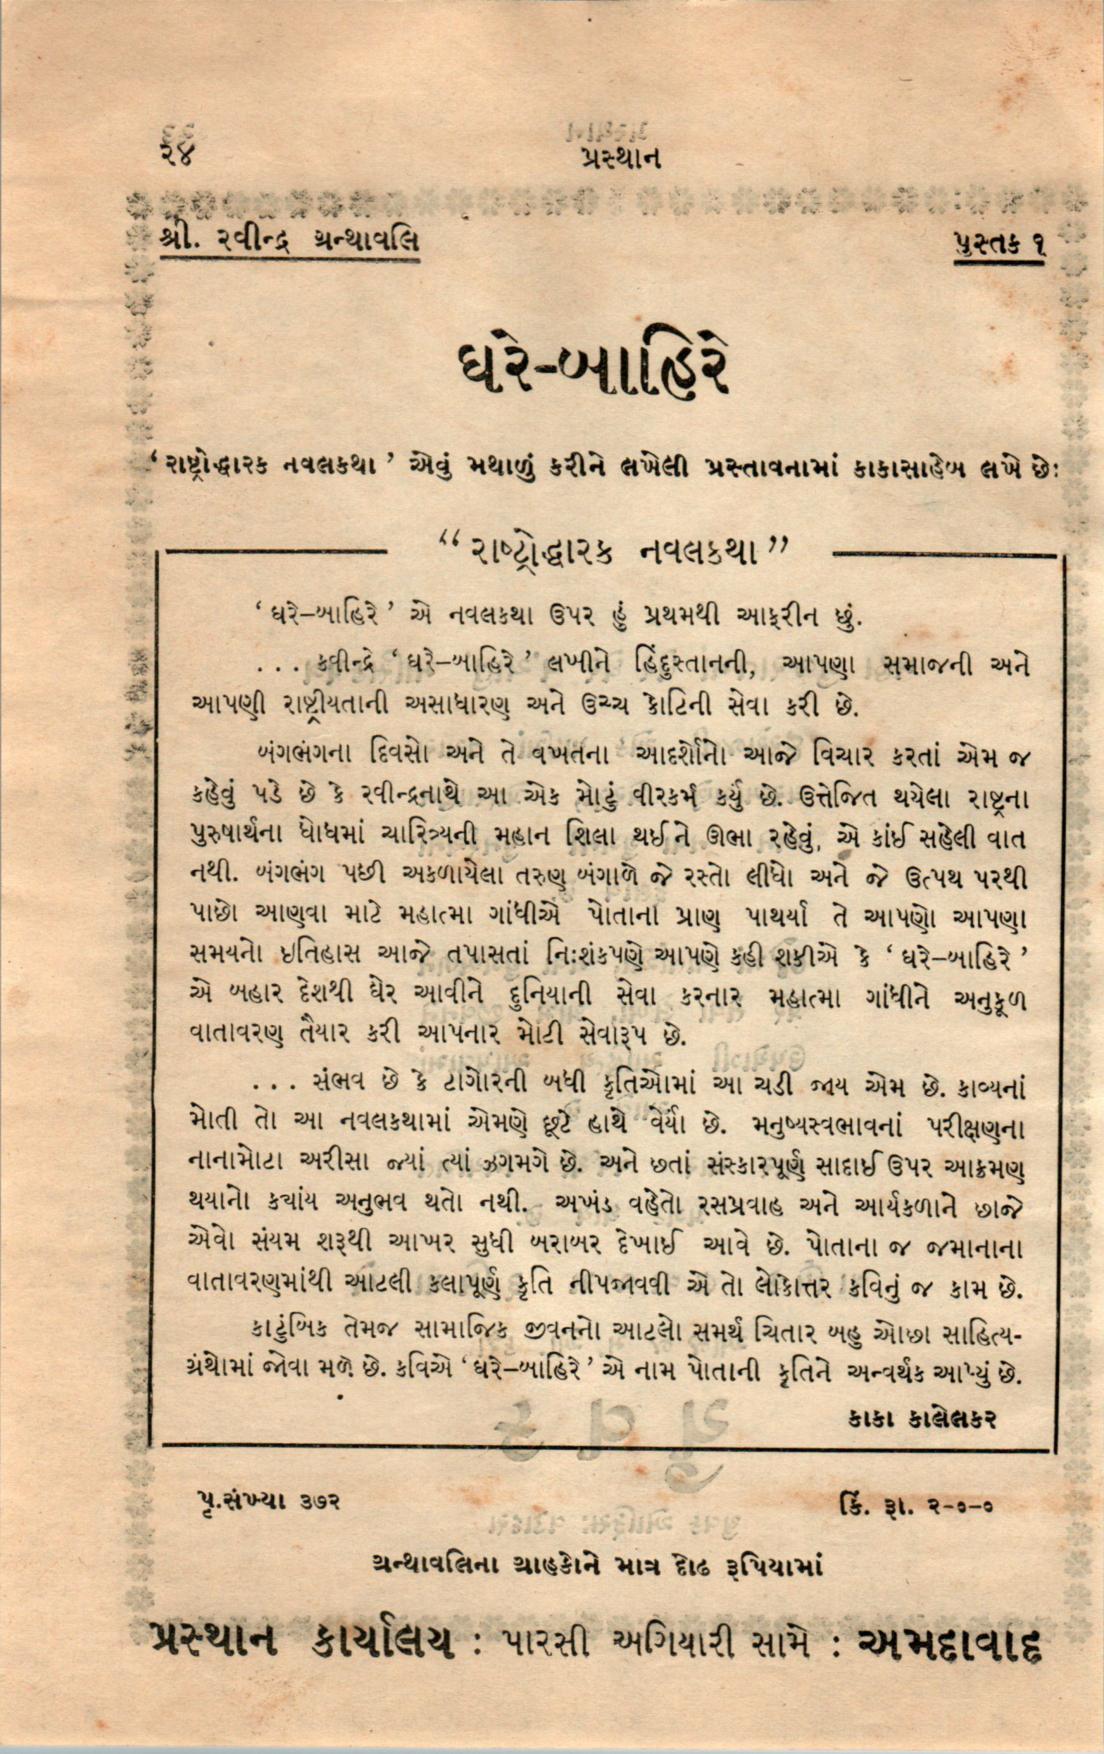 ૨૪
પ્રસ્થાન
શ્રી. રવીન્દ્ર ગ્રન્થાવલિ
પુસ્તક ૧
ઘરે-બાહિરે
‘રાષ્ટ્રોદ્ધારક નવલકથા’ એવું મથાળું કરીને લખેલી પ્રસ્તાવનામાં કાકાસાહેબ લખે છે:
“રાષ્ટ્રોદ્ધારક નવલકથા”
‘ઘરે–બાહિરે’ એ નવલકથા ઉપર હું પ્રથમથી આફરીન છું.
... કવીન્દ્રે ‘ઘરે–બાહિરે’ લખીને હિંદુસ્તાનની, આપણા સમાજની અને
આપણી રાષ્ટ્રીયતાની અસાધારણ અને ઉચ્ચ કોટિની સેવા કરી છે.
બંગભંગના દિવસો અને તે વખતના આદર્શોનો આજે વિચાર કરતાં એમ જ
કહેવું પડે છે કે રવીન્દ્રનાથે આ એક મોટું વીરકર્મ કર્યું છે. ઉત્તેજિત થયેલા રાષ્ટ્રના
પુરુષાર્થના ધોધમાં ચારિત્ર્યની મહાન શિલા થઈને ઊભા રહેવું, એ કાંઈ સહેલી વાત
નથી. બંગભંગ પછી અકળાયેલા તરુણ બંગાળે જે રસ્તો લીધો અને જે ઉત્પથ પરથી
પાછો આણવા માટે મહાત્મા ગાંધીએ પોતાના પ્રાણ પાથર્યા તે આપણો આપણા
સમયનો ઇતિહાસ આજે તપાસતાં નિઃશંકપણે આપણે કહી શકીએ કે ‘ઘરે–બાહિરે’
એ બહાર દેશથી ઘેર આવીને દુનિયાની સેવા કરનાર મહાત્મા ગાંધીને અનુકૂળ
વાતાવરણ તૈયાર કરી આપનાર મોટી સેવારૂપ છે.
... સંભવ છે કે ટાગોરની બધી કૃતિઓમાં આ ચડી જાય એમ છે. કાવ્યનાં
મોતી તો આ નવલકથામાં એમણે છૂટે હાથે વેર્યાં છે. મનુષ્યસ્વભાવનાં પરીક્ષણના
નાનામોટા અરીસા જ્યાં ત્યાં ઝગમગે છે. અને છતાં સંસ્કારપૂર્ણ સાદાઈ ઉપર આક્રમણ
થયાનો કચાંય અનુભવ થતો નથી. અખંડ વહેતો રસપ્રવાહ અને આર્યકળાને છાજે
એવો સંયમ શરૂથી આખર સુધી બરાબર દેખાઈ આવે છે. પોતાના જ જમાનાના
વાતાવરણમાંથી આટલી કલાપૂર્ણ કૃતિ નીપજાવવી એ તો લોકોત્તર કવિનું જ કામ છે.
કૌટુંબિક તેમજ સામાજિક જીવનનો આટલો સમર્થ ચિતાર બહુ ઓછા સાહિત્ય-
ગ્રંથોમાં જોવા મળે છે. કવિએ ‘ઘરે–બાહિરે’ એ નામ પોતાની કૃતિને અન્વર્થક આપ્યું છે.
કાકા કાલેલકર
પૃ.સંખ્યા ૩૭૨
કિં. રૂા. ૨-૦-૦
ગ્રન્થાવલિના ગ્રાહકોને માત્ર દોઢ રૂપિયામાં
પ્રસ્થાન કાર્યાલય : પારસી અગિયારી સામે : અમદાવાદ